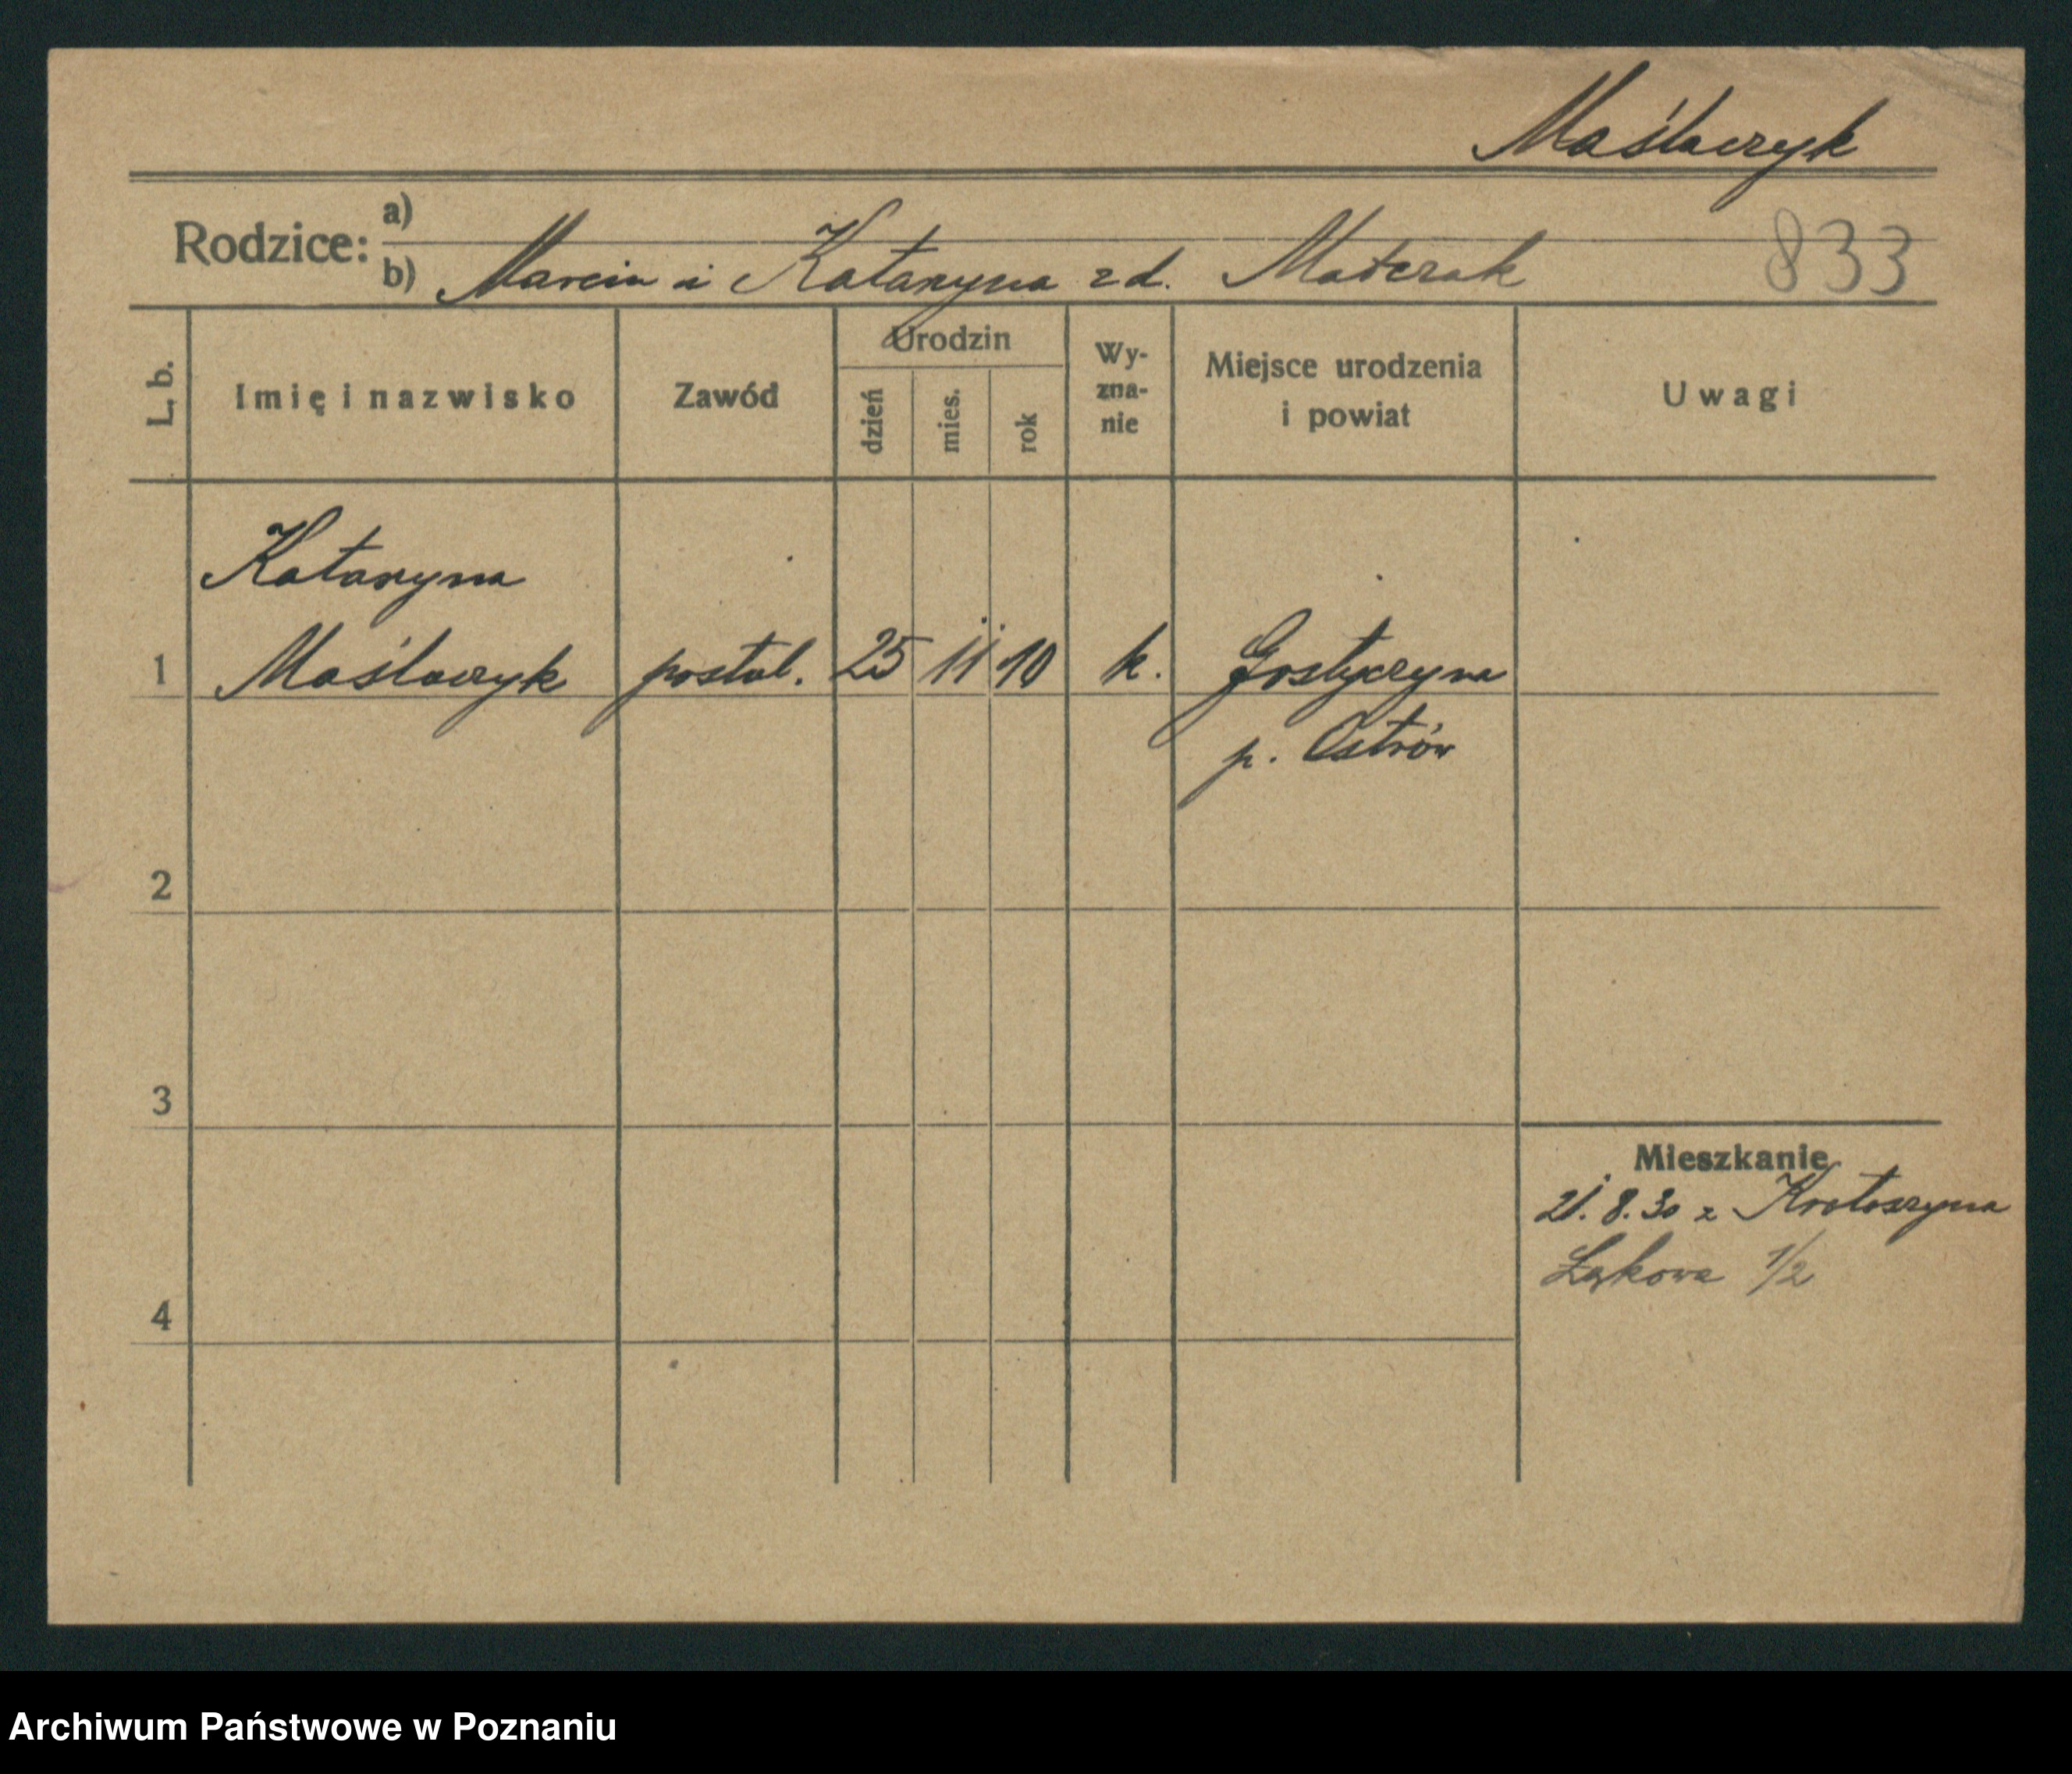 Maślaczyk
Rodzice:
a)
b) Marcin i Katarzyna zd. Matczak
833
L. b.
Imię i nazwisko
Zawód
Urodzin
dzień
mies.
rok
Wy-
zna-
nie
Miejsce urodzenia
i powiat
Uwagi
Katarzyna
1 Maślaczyk postul. 25 11 10 k. Gostyczyna
p. Ostrów
2
3
Mieszkanie
21. 8. 30 z Krotoszyna
Łąkowa 1/2
4
Archiwum Państwowe w Poznaniu